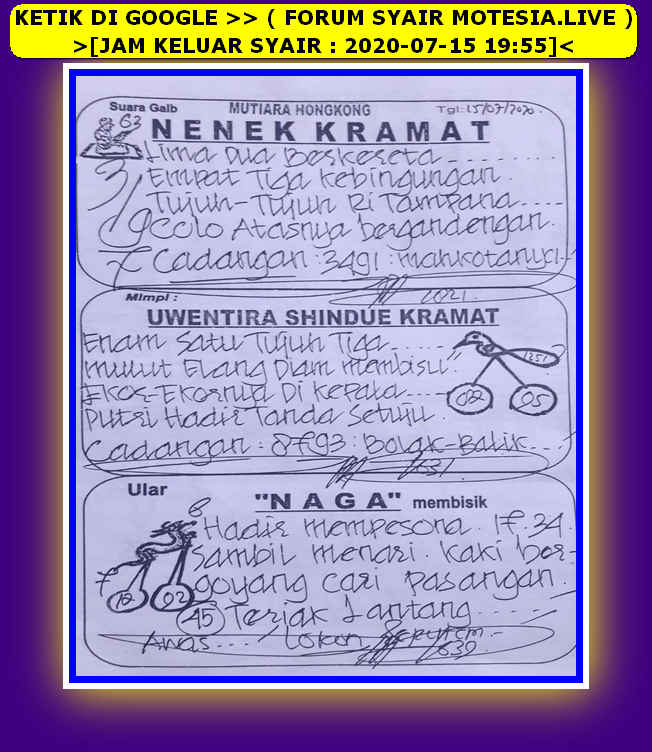 KETIK DI GOOGLE >> ( FORUM SYAIR MOTESIA.LIVE )
>[JAM KELUAR SYAIR : 2020-07-15 19:55]<
Suara Gaib MUTIARA HONGKONG Tgl: 15/07/2020.
62
NENEK KRAMAT
Lima Dua Beskeseta
Empat Tiga Kebingungan.
Tujuh-Tujuh Di Tampana
Colo Atasnya bergandengan.
Cadangan: 3491: mahkotanya
1021.
Mimpi :
UWENTIRA SHINDUE KRAMAT
Enam Satu Tujuh Tiga
mulut Elang Diam membisu".
1251
Ekor-Ekornya Di Kepala
02 05
Putri Hadir Tanda Setuju.
Cadangan: 8793: Bolak-Balik
1631
Ular
"NAGA" membisik
8
Hadir mempesona. 17.34.
Sambil menari. kaki ber-
7
goyang cari pasangan.
12 02
45 Teriak Lantang
Awas
639